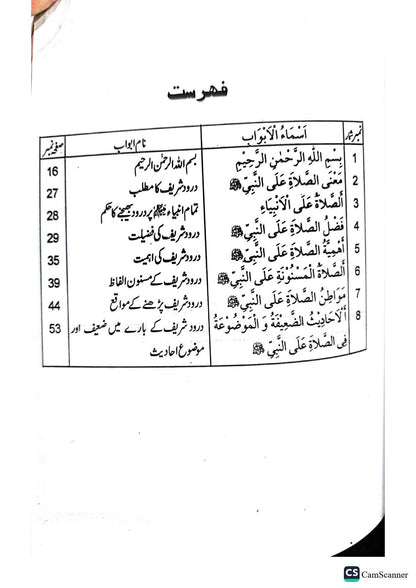 فهرست
نمبر شمار اَسْمَاءُ الْاَبْوَاب نام ابواب صفحہ نمبر
1 بِسْمِ اللّٰهِ الرَّحْمٰنِ الرَّحِيْمِ بسم اللہ الرحمٰن الرحیم 16
2 مَعْنَى الصَّلَاةِ عَلَى النَّبِيِّ ﷺ درود شریف کا مطلب 27
3 اَلصَّلَاةُ عَلَى الْاَنْبِيَاءِ تمام انبیاء ﷺ پر درود بھیجنے کا حکم 28
4 فَضْلُ الصَّلَاةِ عَلَى النَّبِيِّ ﷺ درود شریف کی فضیلت 29
5 اَهَمِّيَّةُ الصَّلَاةِ عَلَى النَّبِيِّ ﷺ درود شریف کی اہمیت 35
6 اَلصَّلَاةُ الْمَسْنُوْنَةِ عَلَى النَّبِيِّ ﷺ درود شریف کے مسنون الفاظ 39
7 مَوَاطِنُ الصَّلَاةِ عَلَى النَّبِيِّ ﷺ درود شریف پڑھنے کے مواقع 44
8 اَلْاَحَادِيْثُ الضَّعِيْفَةُ وَ الْمَوْضُوْعَةُ درود شریف کے بارے میں ضعیف اور 53
فِى الصَّلَاةِ عَلَى النَّبِيِّ ﷺ موضوع احادیث
CS CamScanner